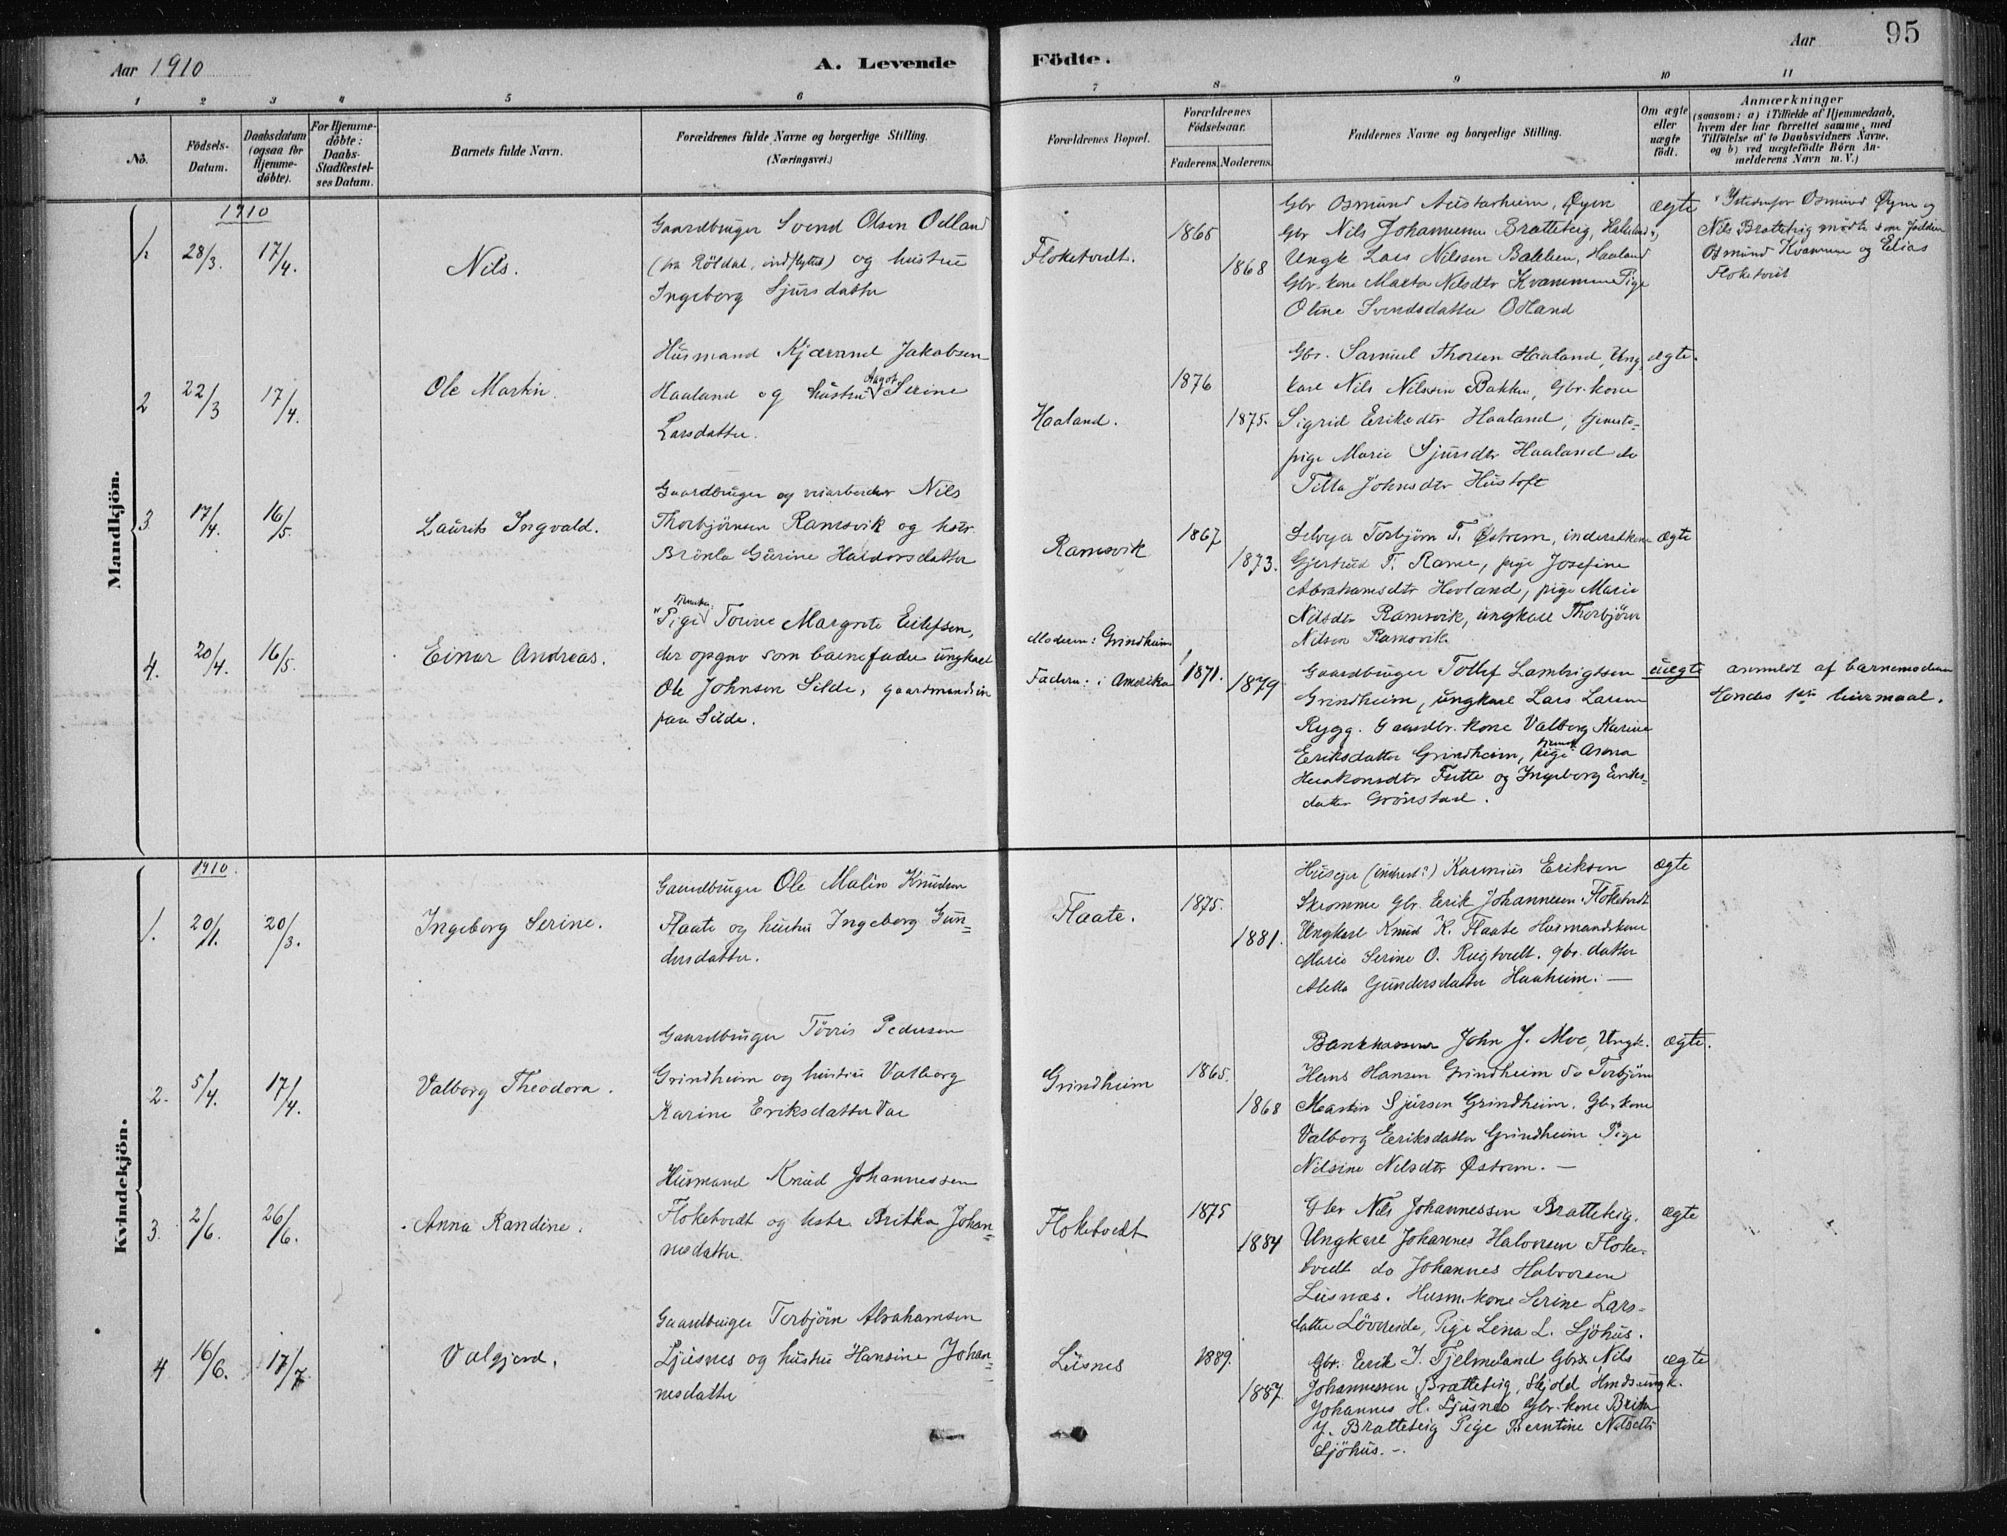 Aar 1910
A. Levende
Födte.
Aar
95
1
2
3
4
5
6
7
8
9
10
11
No.
Födsels-
Datum.
Daabsdatum
(ogsaa for
Hjemme-
döbte).
For Hjemme-
döbte:
Daabs-
Stadfæstel-
ses Datum.
Barnets fulde Navn.
Forældrenes fulde Navne og borgerlige Stilling.
(Næringsvei.)
Forældrenes Bopæl.
Forældrenes
Födselsaar.
Faderens.
Moderens.
Faddernes Navne og borgerlige Stilling.
Om ægte
eller
uægte
födt.
Anmærkninger
(saasom: a) i Tilfælde af Hjemmedaab,
hvem der har forrettet samme, med
Tilföielse af to Daabsvidners Navne,
og b) ved uægtefödte Börn An-
melderens Navn m. V.)
Mandkjön.
1910
1.
28/3.
17/4.
Nils.
Gaardbruger Svend Olsen Odland
(fra Röldal, indflyttet) og hustru
Ingeborg Sjursdatter
Floketvedt.
1865
1868
Gbr Osmund Austarheim, Øyen
Gbr Nils Johannesen Bratteteig,
Ungk Lars Nilssen Bakken, Haaland
Gbr. kone Marta Nilsdtr Kvammen Pige
Oline Svendsdatter Odland
ægte
Istedenfor Osmund Øyen og
Nils Bratteteig mødte som faddere
Osmund Kvammen og Elias
Floketveit
2
22/3
17/4.
Ole Martin.
Husmand Kjærand Jakobsen
Haaland og hustru Aagot Serine
Larsdatter.
Haaland.
1876
1875.
Gbr. Samuel Thorsen Haaland, Ung-
karl Nils Nilssen Bakke, Gbr. kone
Sigrid Eriksdtr Haaland, tjeneste-
pige Marie Sjursdtr Haaland do
Tilla Johnsdtr Hustoft
ægte.
3
17/4.
16/5.
Laurits Ingvald.
Gaardbruger og veiarbeider Nils
Thorbjörnsen Ramsvik og hstr.
Brönla Gurine Haldorsdatter
Ramsvik
1867
1873.
Selveier Torbjörn T. Østrem, inderstkone
Gjertrud T. Rame, pige Josefine
Abrahamsdtr Hovland, pige Marie
Nilsdtr Ramsvik, ungkarl Thorbjörn
Nilsen Ramsvik
ægte
4.
20/4.
16/5.
Einar Andreas.
Pige Tomine Margrete Eilefsen,
der opgav som barnefader ungkarl
Ole Johnsen Silde, gaardmandssön
paa Silde.
Moderen: Grindheim
Faderen: i Amerika
1871.
1879
Gaardbruger Tollef Lambrigtsen
Grindheim, ungkarl Lars Larsen
Rygg. Gaardbr. kone Valborg Karine
Eriksdatter Grindheim, pige Anna
Haakonsdtr Tutte og Ingeborg Eriks-
datter Grönstad.
uægte
anmeldt af barnemoderen
Hendes 1ste leiermaal.
Kvindekjön.
1910
1.
20/1.
20/3.
Ingeborg Serine.
Gaardbruger Ole Malin Knudsen
Flaate og hustru Ingeborg Gun-
dersdatter.
Flaate.
1875.
1881.
Huseier (inderst?) Rasmus Eriksen
Skromme Gbr. Erik Johannesen Floketvedt
Ungkarl Knud K. Flaate Husmandskone
Marie Serine O. Rugtvedt. gbr. datter
Aletta Gundersdatter Haaheim. —
ægte
2.
5/4.
17/4.
Valborg Theodora.
Gaardbruger Tövris Pedersen
Grindheim og hustru Valborg
Karine Eriksdatter
Grindheim
1865.
1868
Bankkasserer John J. Moe, Ungk.
Hans Hansen Grindheim do Torbjörn
Martin Sjursen Grindheim. Gbr. kone
Valborg Eriksdatter Grindheim Pige
Nilsine Nilsdtr Østrem. —
ægte.
3
2/6.
26/6.
Anna Randine.
Husmand Knud Johannessen
Floketvedt og hstr. Britha Johan-
nesdatter
Floketvedt
1875
1884
Gbr Nils Johannessen Bratteteig.
Ungkarl Johannes Halvorsen Floke-
tvedt do Johannes Halvorsen
Lusnæs. Husm. kone Serine Lars-
datter Lövereide, Pige Lina L. Sjöhus.
ægte
4
16/6.
17/7
Valgjerd.
Gaardbruger Torbjörn Abrahamsen
Ljusnes og hustru Hansine Johan-
nesdatter
Lusnes
1889.
1887.
Gbr. Erik J. Tjelmeland Gbr. Nils
Johannessen Bratteteig, Skjold Hmds. ungk.
Johannes H. Ljusnes Gbr. kone Britha
J. Bratteteig Pige Berntine Nilsdtr
Sjöhus. —
ægte